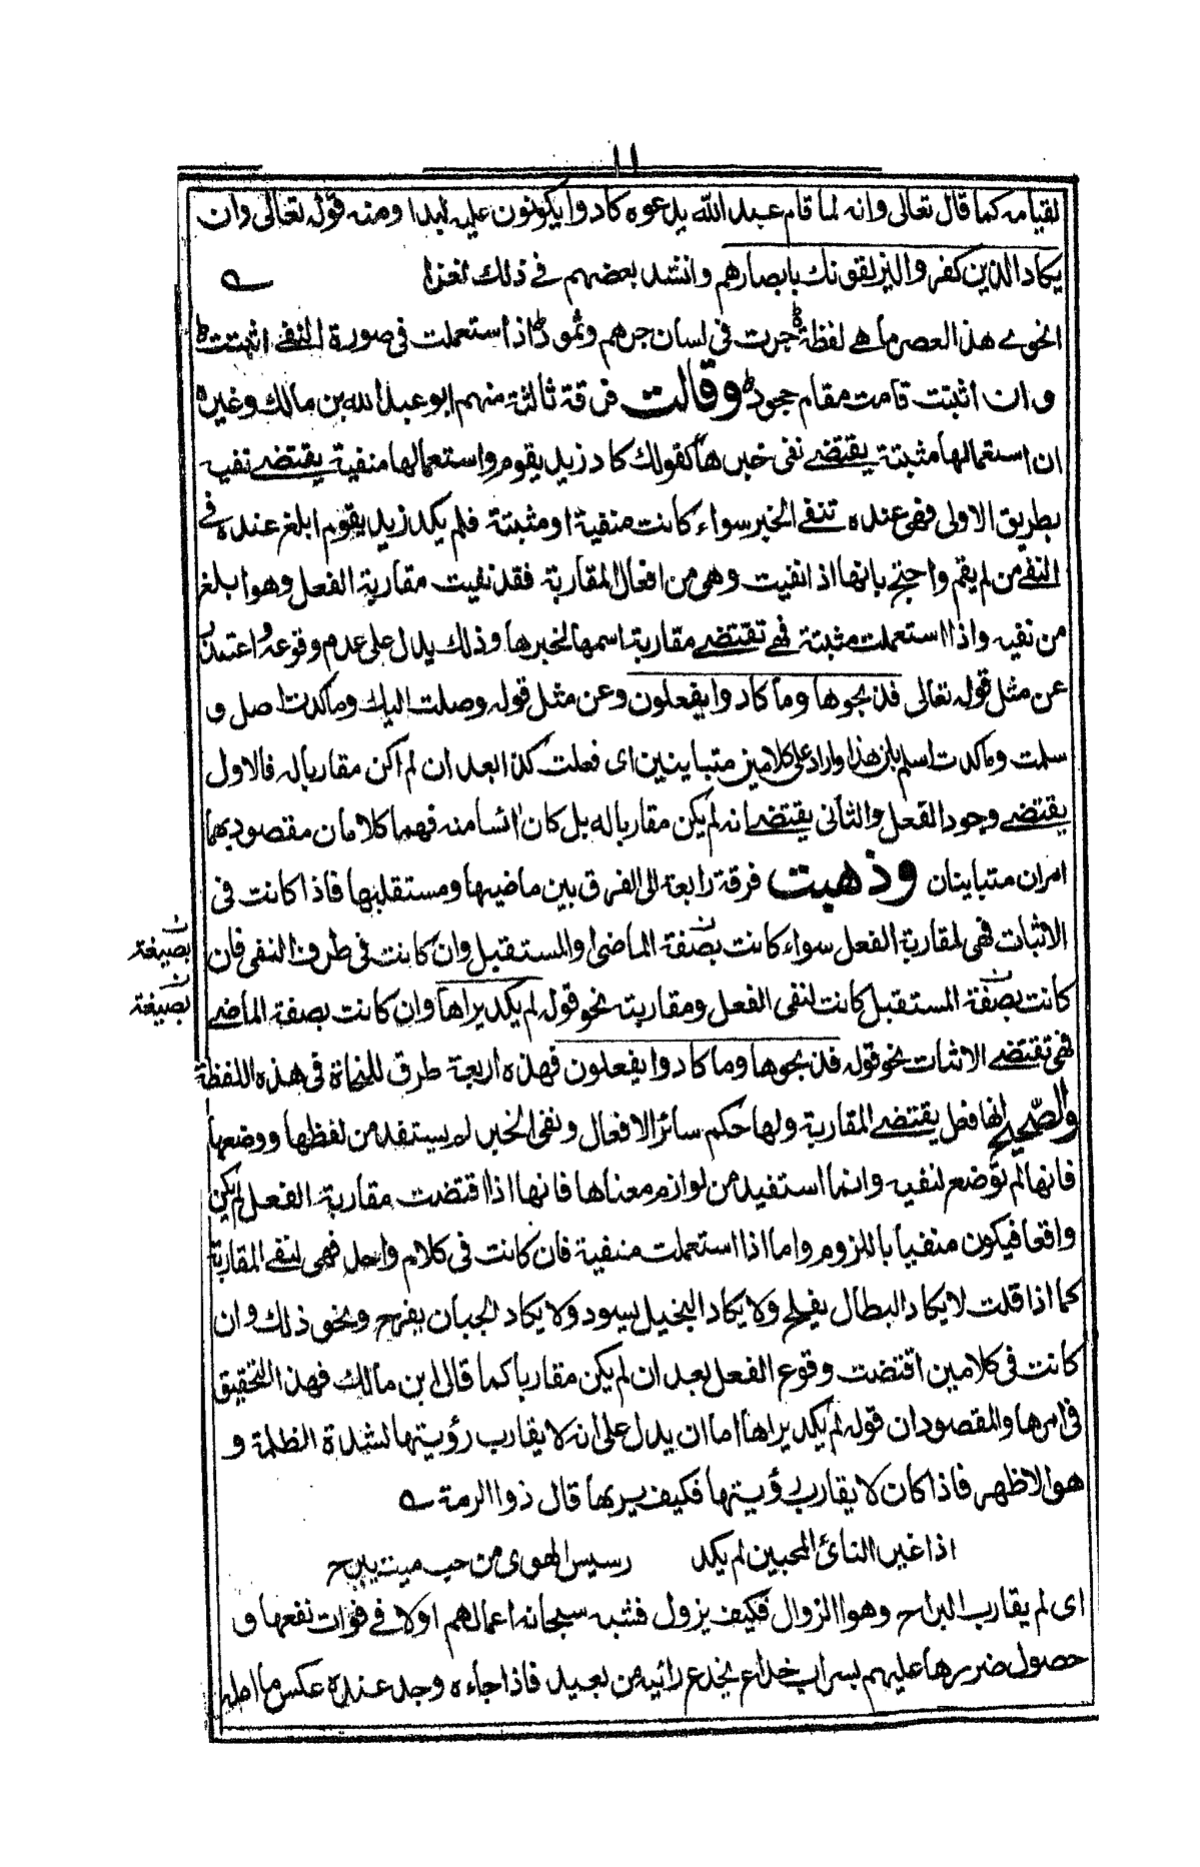 ١١
لقيامه كما قال تعالى وانه لما قام عبد الله يدعوه كادوا يكونون عليه لبدا ومنه قوله تعالى وان
يكاد الذين كفروا ليزلقونك بابصارهم وانشد بعضهم في ذلك لغزا
انحوي هذا العصر ما هي لفظة جرت في لسان جرهم وثمود اذا استعملت في صورة النفي اثبتت
وان اثبتت قامت مقام جحود وقالت فرقة ثالثة منهم ابو عبد الله بن مالك وغيره
ان استعمالها مثبتة يقتضي نفي خبرها كقولك كاد زيد يقوم واستعمالها منفية يقتضي نفيه
بطريق الاولى فهي عنده تنفي الخبر سواء كانت منفية او مثبتة فلم يكد زيد يقوم ابلغ عنده في
النفي من لم يقم واحتج بانها اذا نفيت وهي من افعال المقاربة فقد نفيت مقاربة الفعل وهو ابلغ
من نفيه واذا استعملت مثبتة فهي تقتضي مقاربة اسمها لخبرها وذلك يدل على عدم وقوعه واعتذر
عن مثل قوله تعالى فذبحوها وما كادوا يفعلون وعن مثل قوله وصلت اليك وما كدت اصل و
سلمت وما كدت اسلم بان هذا وارد على كلامين متباينين اى فعلت كذا بعد ان لم اكن مقاربا له فالاول
يقتضي وجود الفعل والثاني يقتضي انه لم يكن مقاربا له بل كان ائسا منه فهما كلامان مقصود بهما
امران متباينان وذهبت فرقة رابعة الى الفرق بين ماضيها ومستقبلها فاذا كانت في
الاثبات فهي لمقاربة الفعل سواء كانت بصفة الماضي او المستقبل وان كانت في طرف النفي فان
بصيغة
كانت بصفة المستقبل كانت لنفي الفعل ومقاربته نحو قوله لم يكد يراها وان كانت بصفة الماضي
بصيغة
فهي تقتضي الاثبات نحو قوله فذبحوها وما كادوا يفعلون فهذه اربعة طرق للنحاة في هذه اللفظة
والصحيح انها فعل يقتضي المقاربة ولها حكم سائر الافعال ونفي الخبر لم يستفد من لفظها ووضعها
فانها لم توضع لنفيه وانما استفيد من لوازم معناها فانها اذا اقتضت مقاربة الفعل لم يكن
واقعا فيكون منفيا باللزوم واما اذا استعملت منفية فان كانت في كلام واحد فهي لنفي المقاربة
كما اذا قلت لا يكاد البطال يفلح ولا يكاد البخيل يسود ولا يكاد الجبان يفرح ونحو ذلك وان
كانت في كلامين اقتضت وقوع الفعل بعد ان لم يكن مقاربا كما قال ابن مالك فهذا التحقيق
في امرها والمقصود ان قوله لم يكد يراها اما ان يدل على انه لا يقارب رؤيتها لشدة الظلمة و
هو الاظهر فاذا كان لا يقارب رؤيتها فكيف يربها قال ذو الرمة
اذا غير النائ المحبين لم يكد رسيس الهوى من حب ميت يبرح
اى لم يقارب البراح وهو الزوال فكيف يزول فشبه سبحانه اعمالهم اولا في فوات نفعها و
حصول ضررها عليهم بسراب خداع يخدع رائيه من بعيد فاذا جاءه وجد عنده عكس ما امله